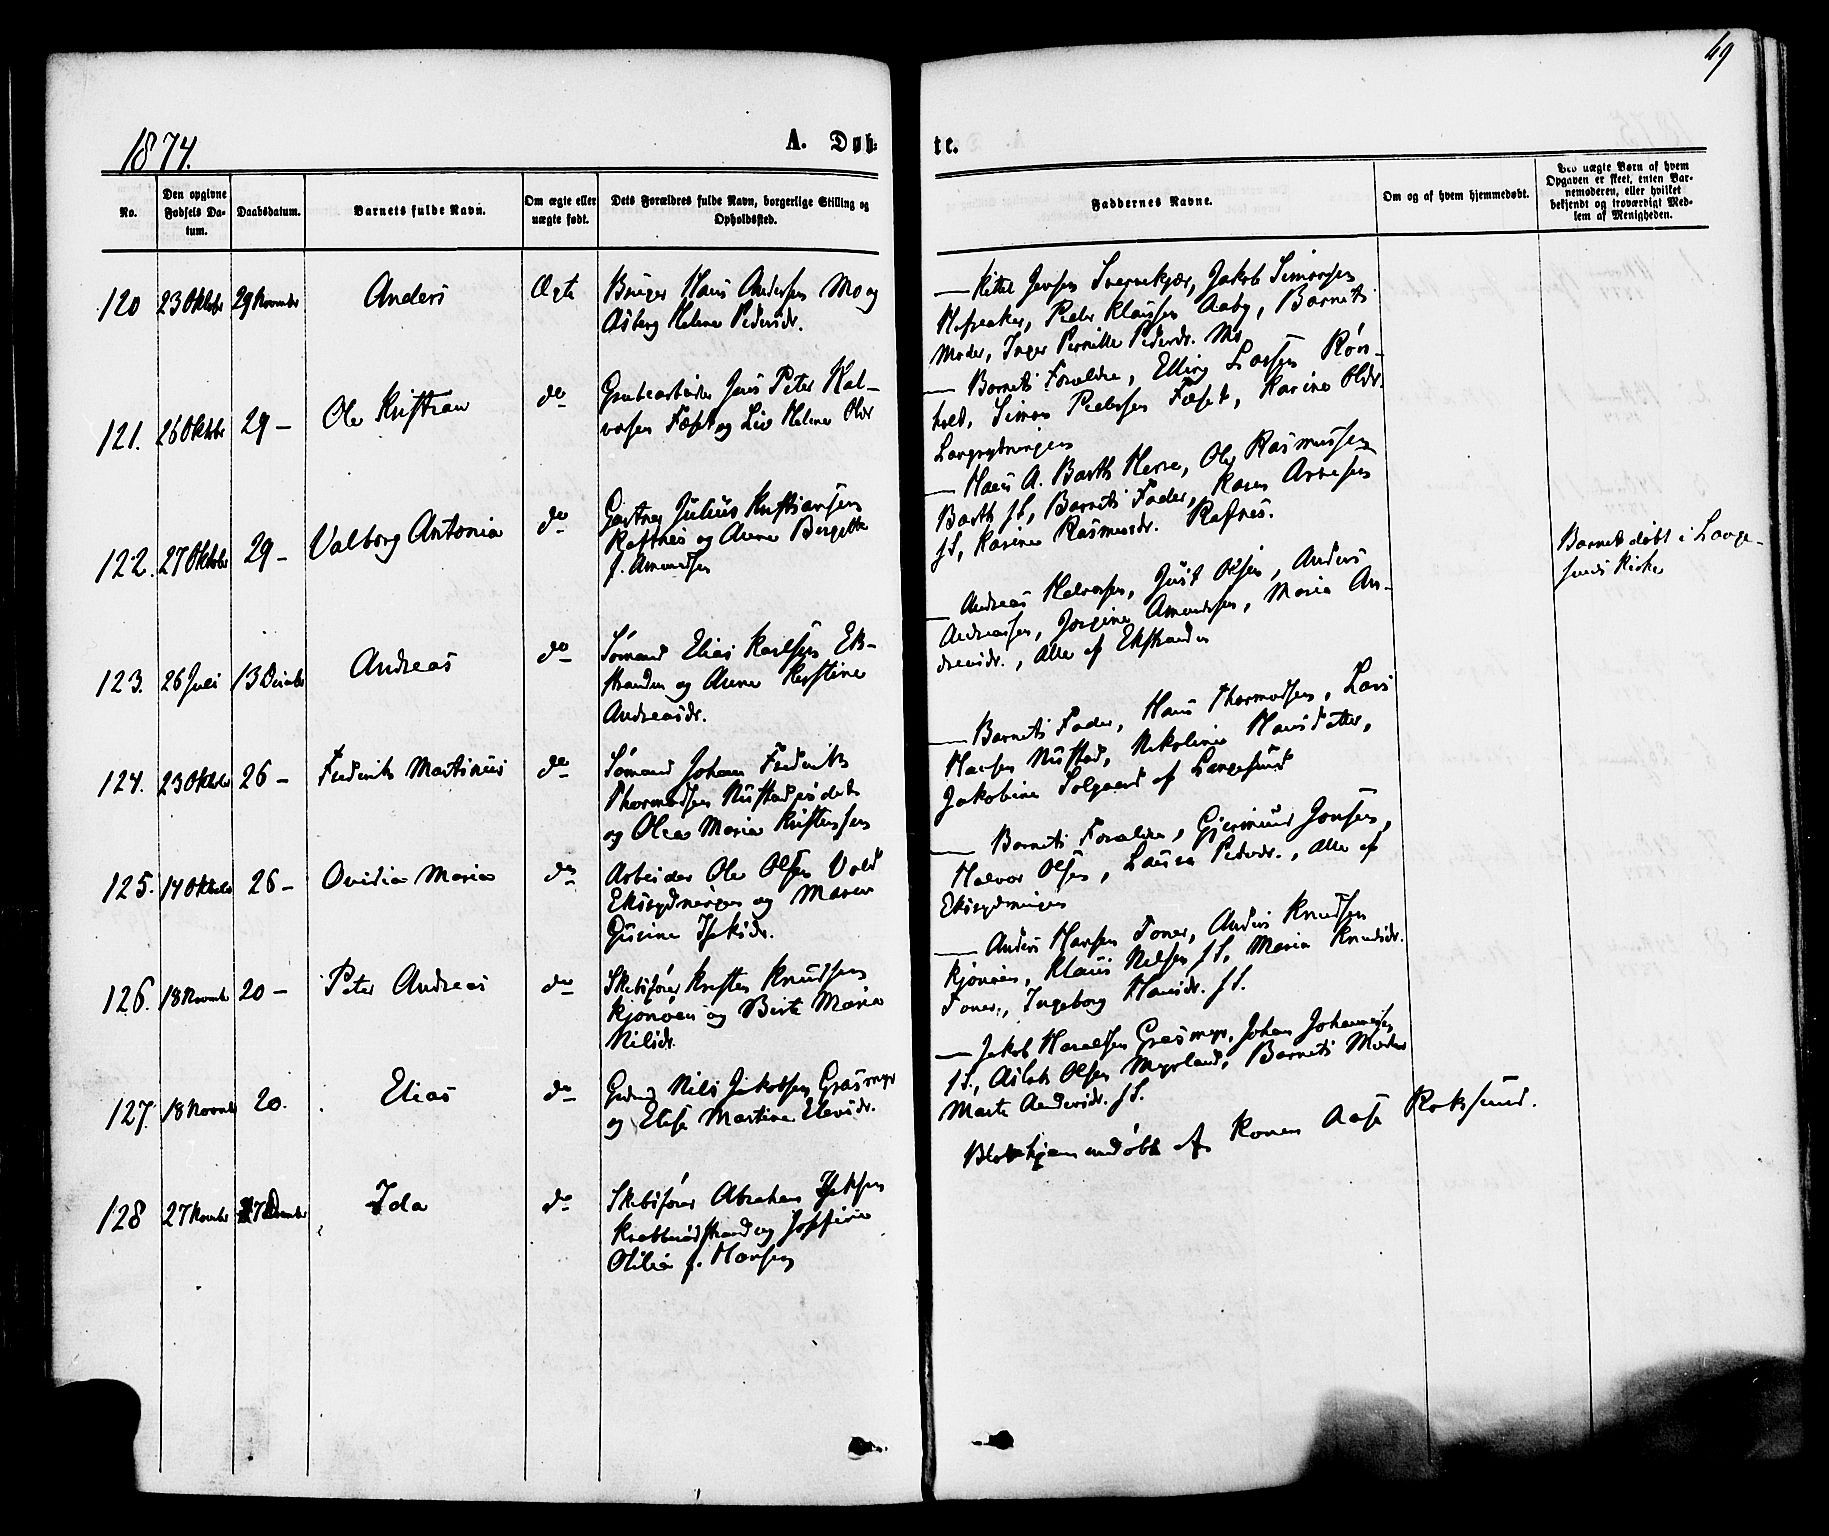 49
1874.
A. Døb-
te.
No.
Den opgivne Fødsels Da-tum.
Daabsdatum.
Barnets fulde Navn.
Om ægte eller uægte født.
Dets Forældres fulde Navn, borgerlige Stilling og Opholdssted.
Faddernes Navne.
Om og af hvem hjemmedøbt.
Ved uægte Børn af hvem Opgaven er skeet, enten Bar-nemoderen, eller hvilket bekjendt og troværdigt Med-lem af Menigheden.
120 23 Oktober 29 November Anders Ægte
Bruger Hans Andersen Mo og
Asberg Helene Pedersdr.
Jakob Simonsen
Peder Klausen Aaby, Barnets
Moder, Inger Pernille Pedersdr. Mo
121. 26 Oktober 29 - Ole Kristian do
Grubearbeider Jens Peter Hal-
vorsen Fæset og Liv Helene Olsdr
- Barnets Forældre, Elling Larsen Røn-
holt, Simon Pedersen Fæset, Karine Olsdr.
Langrydningen
122. 27 Oktober 29 - Valborg Antonia do
Gartner Julius Kristiansen
Rafnes og Anne Bergette
f. Amundsen
- Hans A. Barth Herre, Ole Rasmussen
Barth ss, Barnets Fader, Karen Arnesen
ss, Karine Rasmusdr. Rafnes.
Barnet døbt i Lange-
sunds Kirke
123. 26 Juli 13 December Andreas do
Sømand Elias Karlsen Ek-
stranden og Anne Kirstine
Andreasdr.
- Andreas Halvorsen, Just Olsen, Anders
Andreassen, Jørgine Amundsen, Maria An-
dreasdr., Alle af Ekstranden
124. 23 Oktober 26 - Frederik Martinius do
Sømand Johan Frederik
Thormodsen Nustad
og Olea Maria Kristensen
- Barnets Fader, Hans Thormodsen, Lars
Hansen Nustad, Nikoline Hansdatter,
Jakobine Solgaard af Langesund
125. 14 Oktober 26 - Ovidia Maria do
Arbeider Ole Olsen Vold
Eksrydningen og Maren
Gurine Isaksdr.
- Barnets Forældre, Gjermund Jonsen,
Halvor Olsen, Laura Pedersdr., alle af
Eksrydningen
126. 18 Novembr 20 - Peter Andreas do
Skibsfører Kristen Knudsen
Kjønøen og Berte Maria
Nilsdr.
- Anders Hansen Toner, Anders Knudsen
Kjønøen, Klaus Nilsen ss, Maria Knudsdr.
Toner, Ingeborg Hansdr. ss.
127. 18 Novembr 20. Elias do
Nils Jakobsen Grasmyr
og Elise Martine Elevsdr.
- Jakob Haraldsen Grasmyr, Johan Johannesen
ss., Aslak Olsen Myrland, Barnets Moder
Marte Andersdr. ss.
128 27 Novembr 27 Novembr Ida do
Skibsfører Abraham Isaksen
Krabberødstrand og Josefine
Otilie f. Hansen
Blev hjemmedøbt af Konen Aase Roksund.